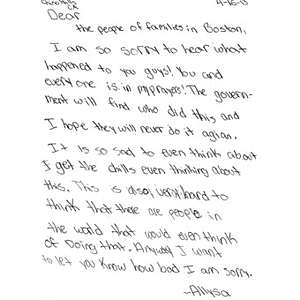 Chino Hills 4-16-13
CA
Dear
the people of families in Boston,
I am so sorry to hear what
happened to you guys! You and
everyone is in my prayers! The govern-
ment will find who did this and
I hope they will never do it agian.
It is so sad to even think about
I get the chills even thinking about
this. This is also very hard to
think that there are people in
the world that would even think
of Doing that. Anyway I want
to let you know how bad I am sorry.
-Allysa